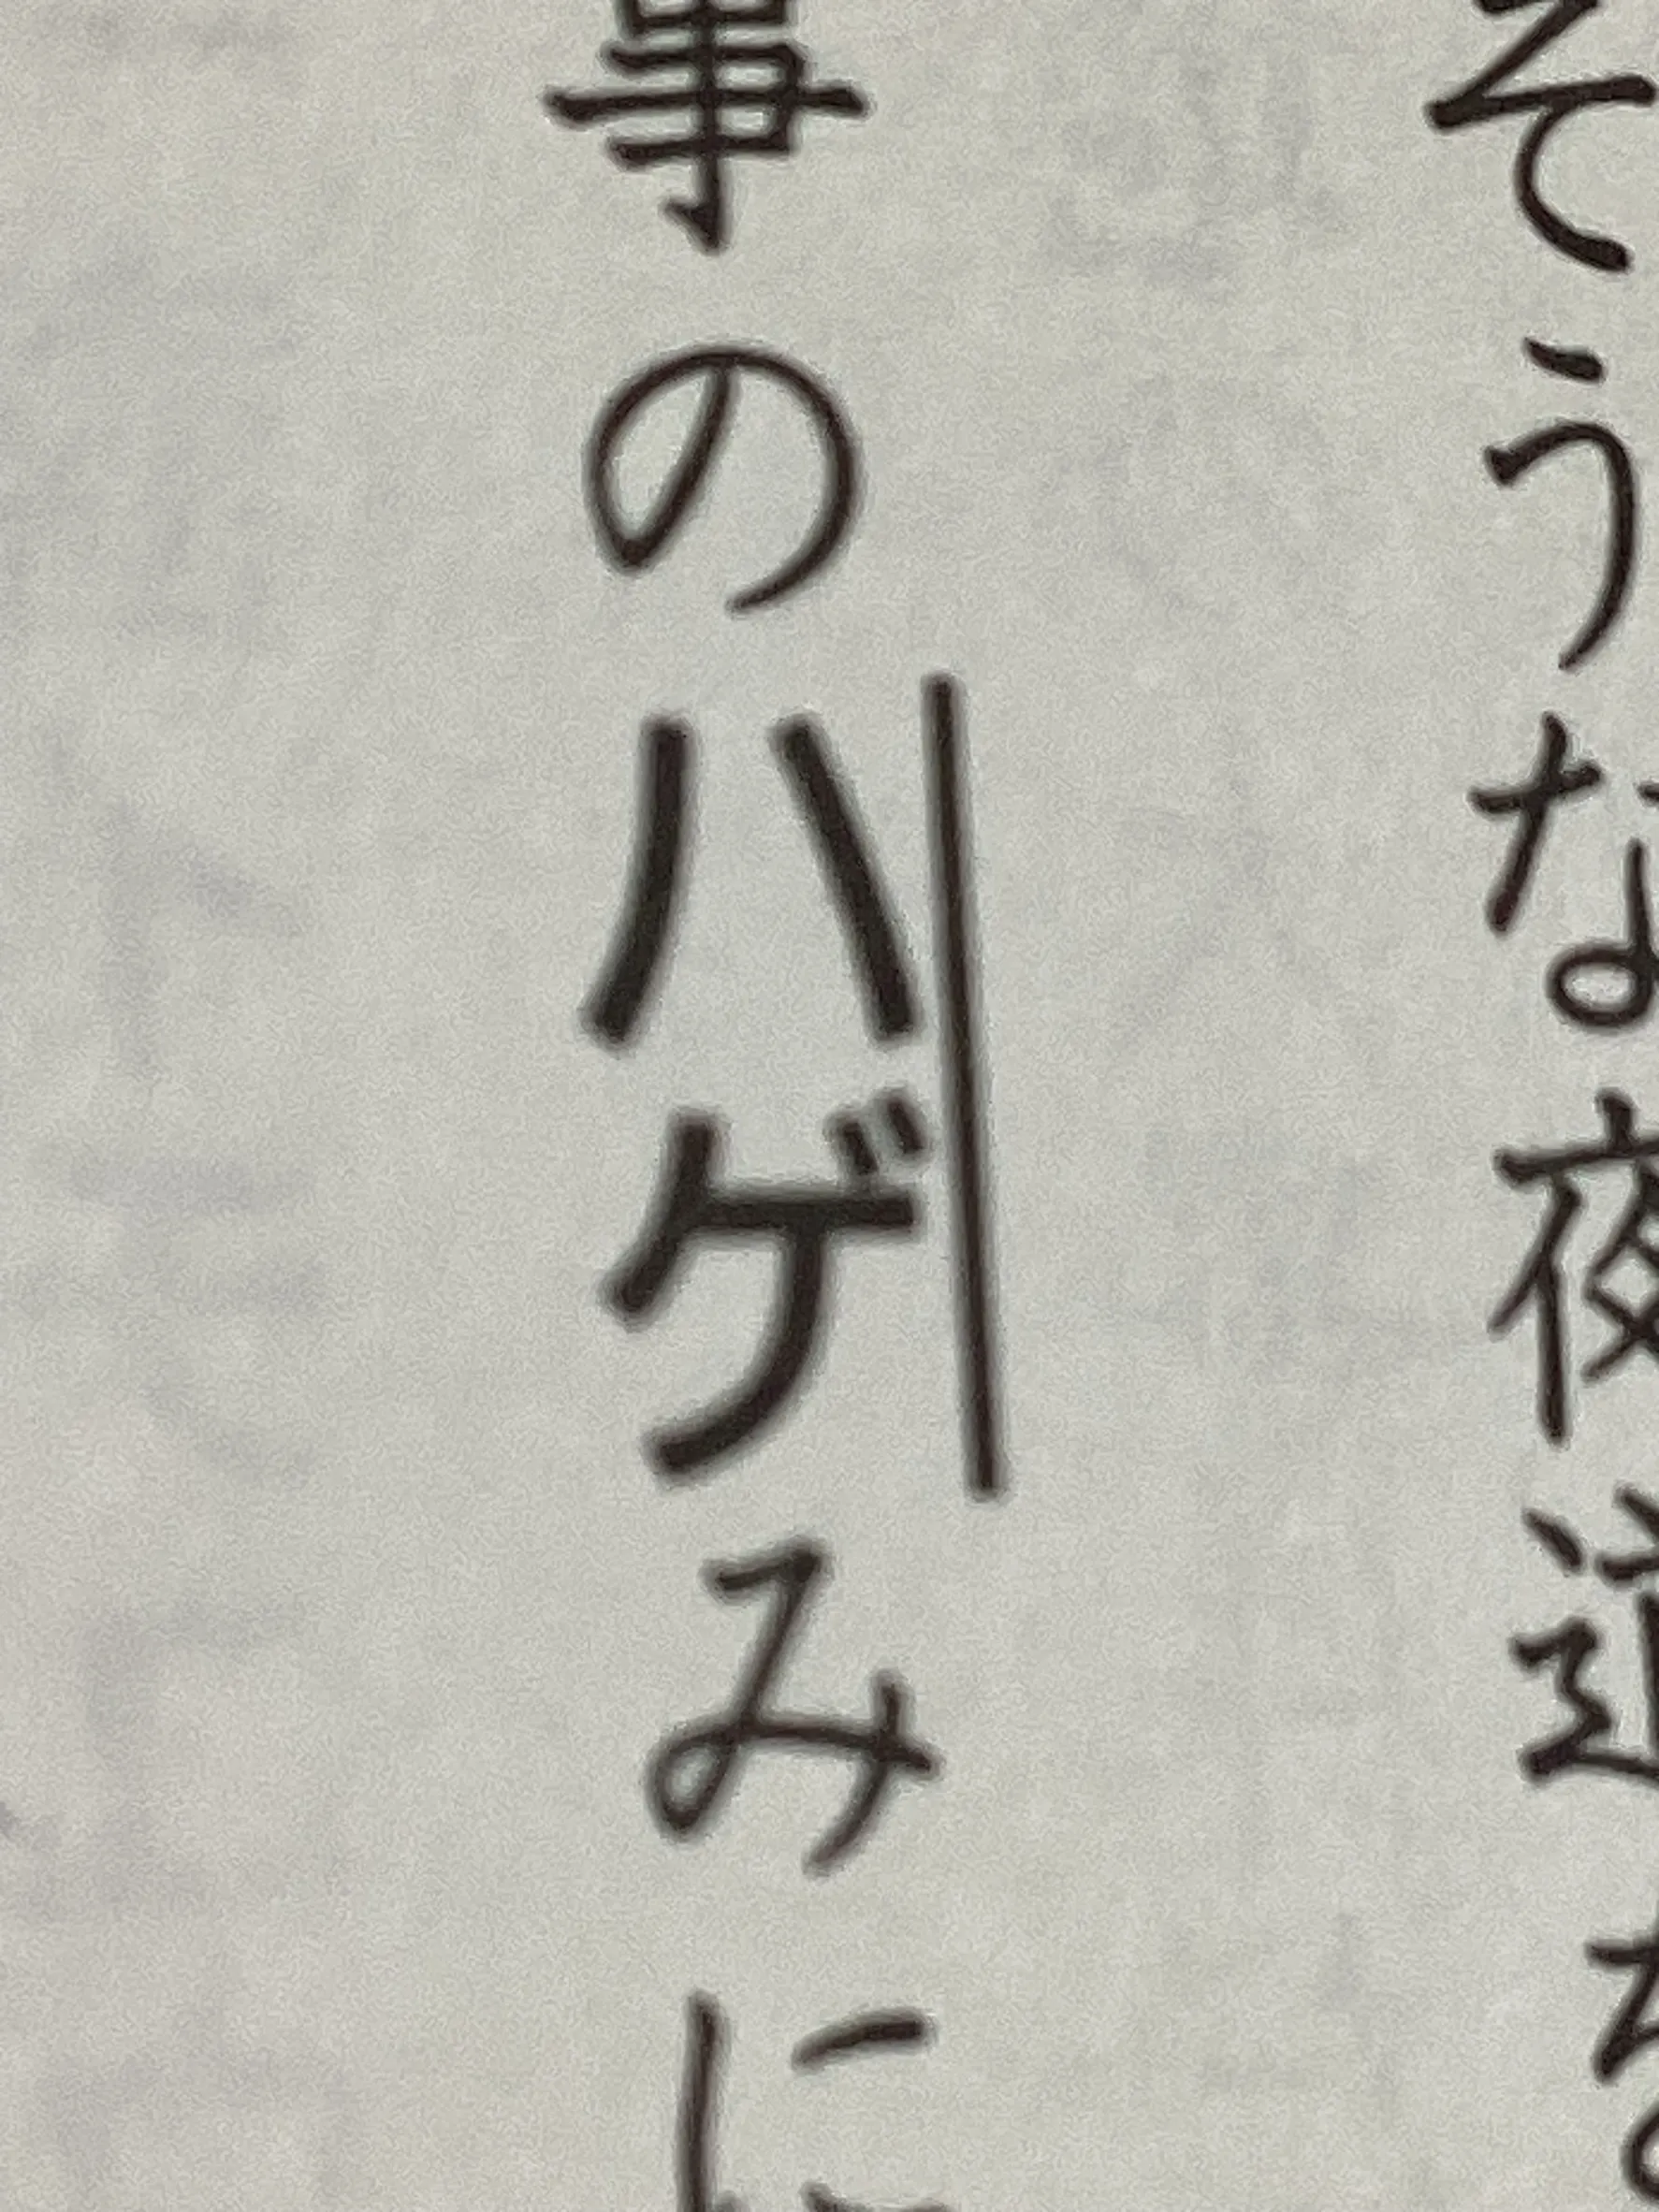 そうな夜道
事のハゲみに